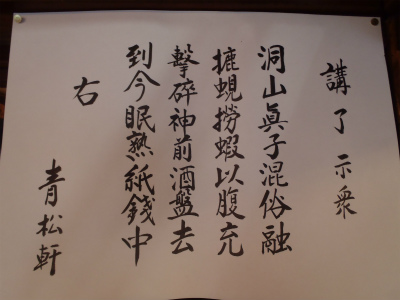 講了示衆
洞山眞子混俗融
摝蜆撈蝦以腹充
擊碎神前酒盤去
到今眠熟紙錢中
右
青松軒